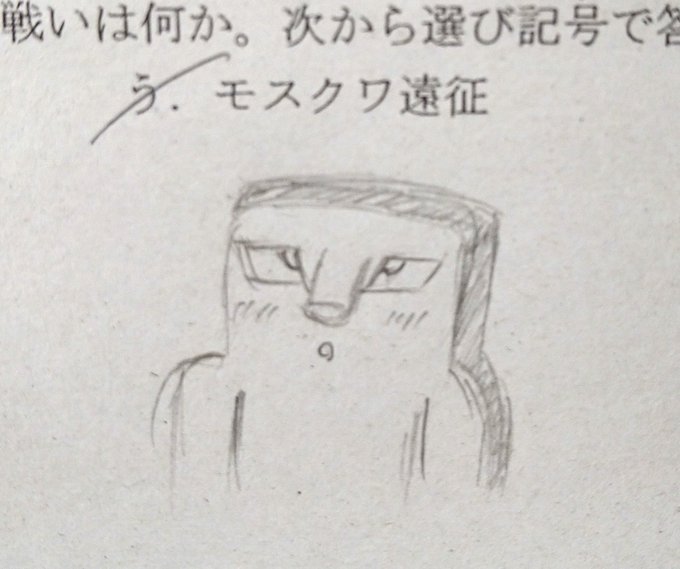 戦いは何か。次から選び記号で答
う．モスクワ遠征